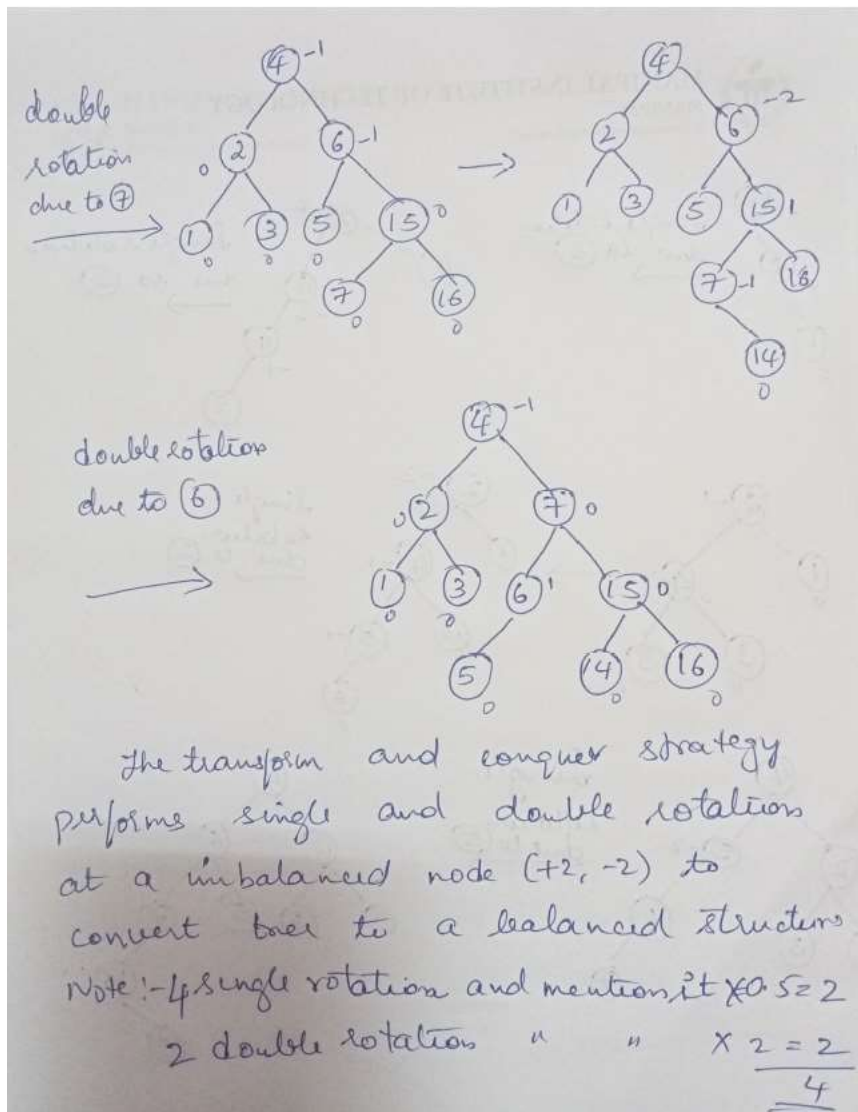 double
rotation
due to 7
4 -1
0 2
6 -1
1 0
3 0
5 0
15 0
7 0
16 0
4
2
6 -2
1
3
5
15 1
7 -1
16
14 0
double rotation
due to 6
4 -1
0 2
7 0
1 0
3 0
6 1
15 0
5 0
14 0
16 0
The transform and conquer strategy
performs single and double rotations
at a imbalanced node (+2, -2) to
convert tree to a balanced structure
Note:- 4 single rotation and mention it x0.5=2
2 double rotation " " x 2 = 2
4